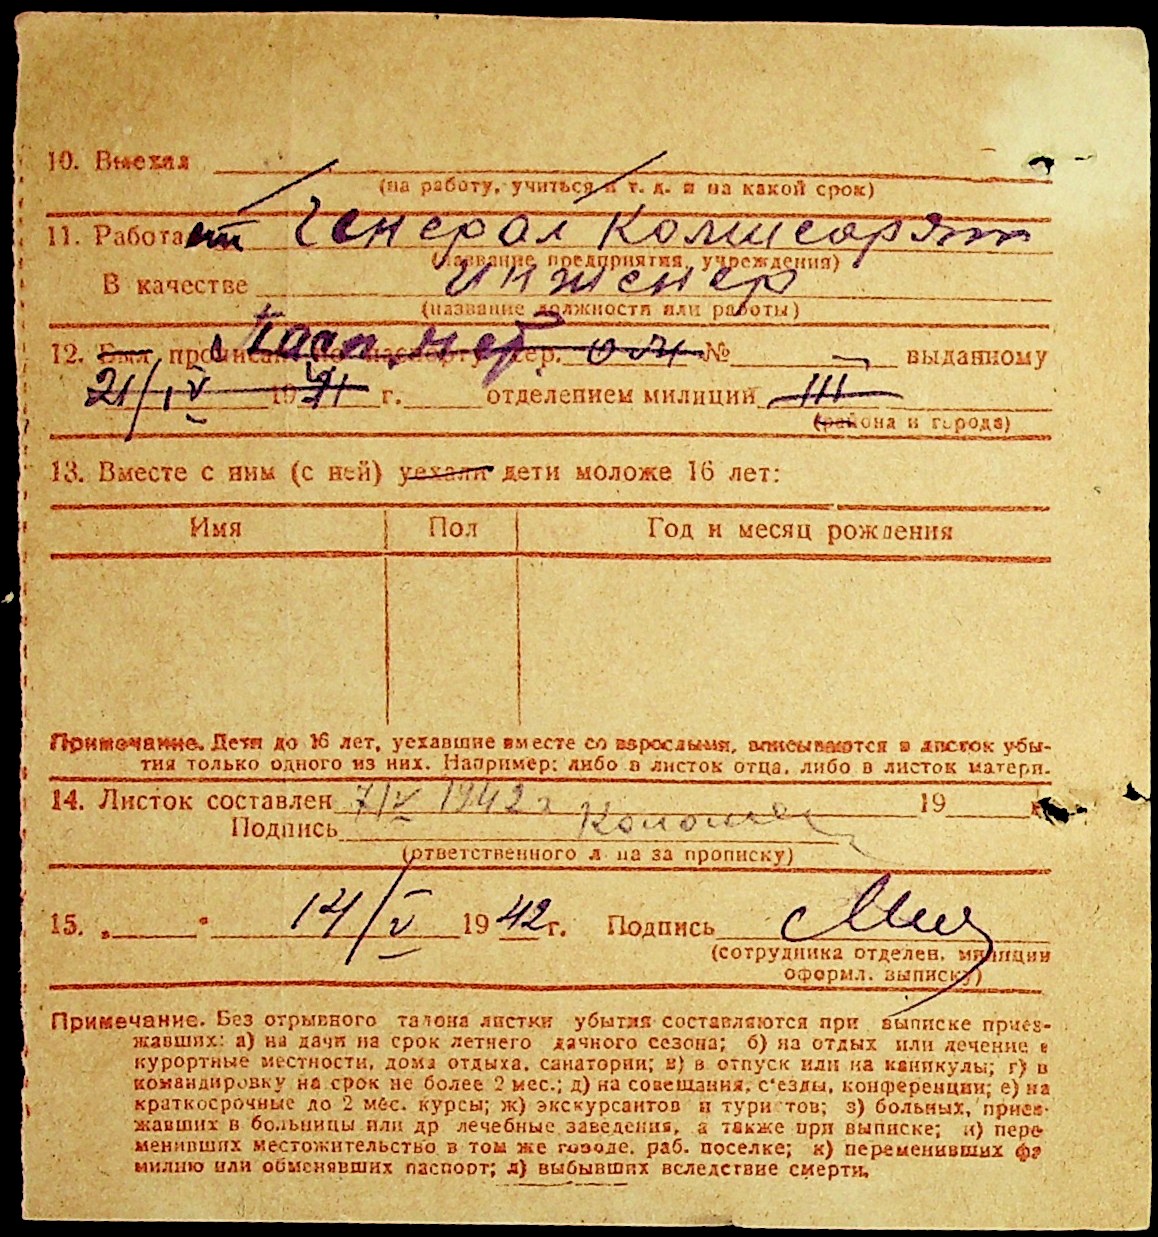 10. Выехал
(на работу, учиться и т. д. и на какой срок)
11. Работает Генерал Комисарят
(название предприятия, учреждения)
В качестве инженер
(название должности или работы)
12. Был прописан по паспорту сер. № выданному
21/IV 1941 г. отделением милиции III
(района и города)
13. Вместе с ним (с ней) уехали дети моложе 16 лет:
Имя Пол Год и месяц рождения
Примечание. Дети до 16 лет, уехавшие вместе со взрослыми, вписываются в листок убы-
тия только одного из них. Например: либо в листок отца, либо в листок матери.
14. Листок составлен 7/V 1942 г 19 г.
Подпись
(ответственного лица за прописку)
15. „ “ 14/V 1942 г. Подпись
(сотрудника отделен. милиции
оформл. выписку)
Примечание. Без отрывного талона листки убытия составляются при выписке приез-
жавших: а) на дачи на срок летнего дачного сезона; б) на отдых или лечение в
курортные местности, дома отдыха, санатории; в) в отпуск или на каникулы; г) в
командировку на срок не более 2 мес.; д) на совещания, с'езды, конференции; е) на
краткосрочные до 2 мес. курсы; ж) экскурсантов и туристов; з) больных, приез-
жавших в больницы или др лечебные заведения, а также при выписке; и) пере-
менивших местожительство в том же городе, раб. поселке; к) переменивших фа-
милию или обменявших паспорт; л) выбывших вследствие смерти.